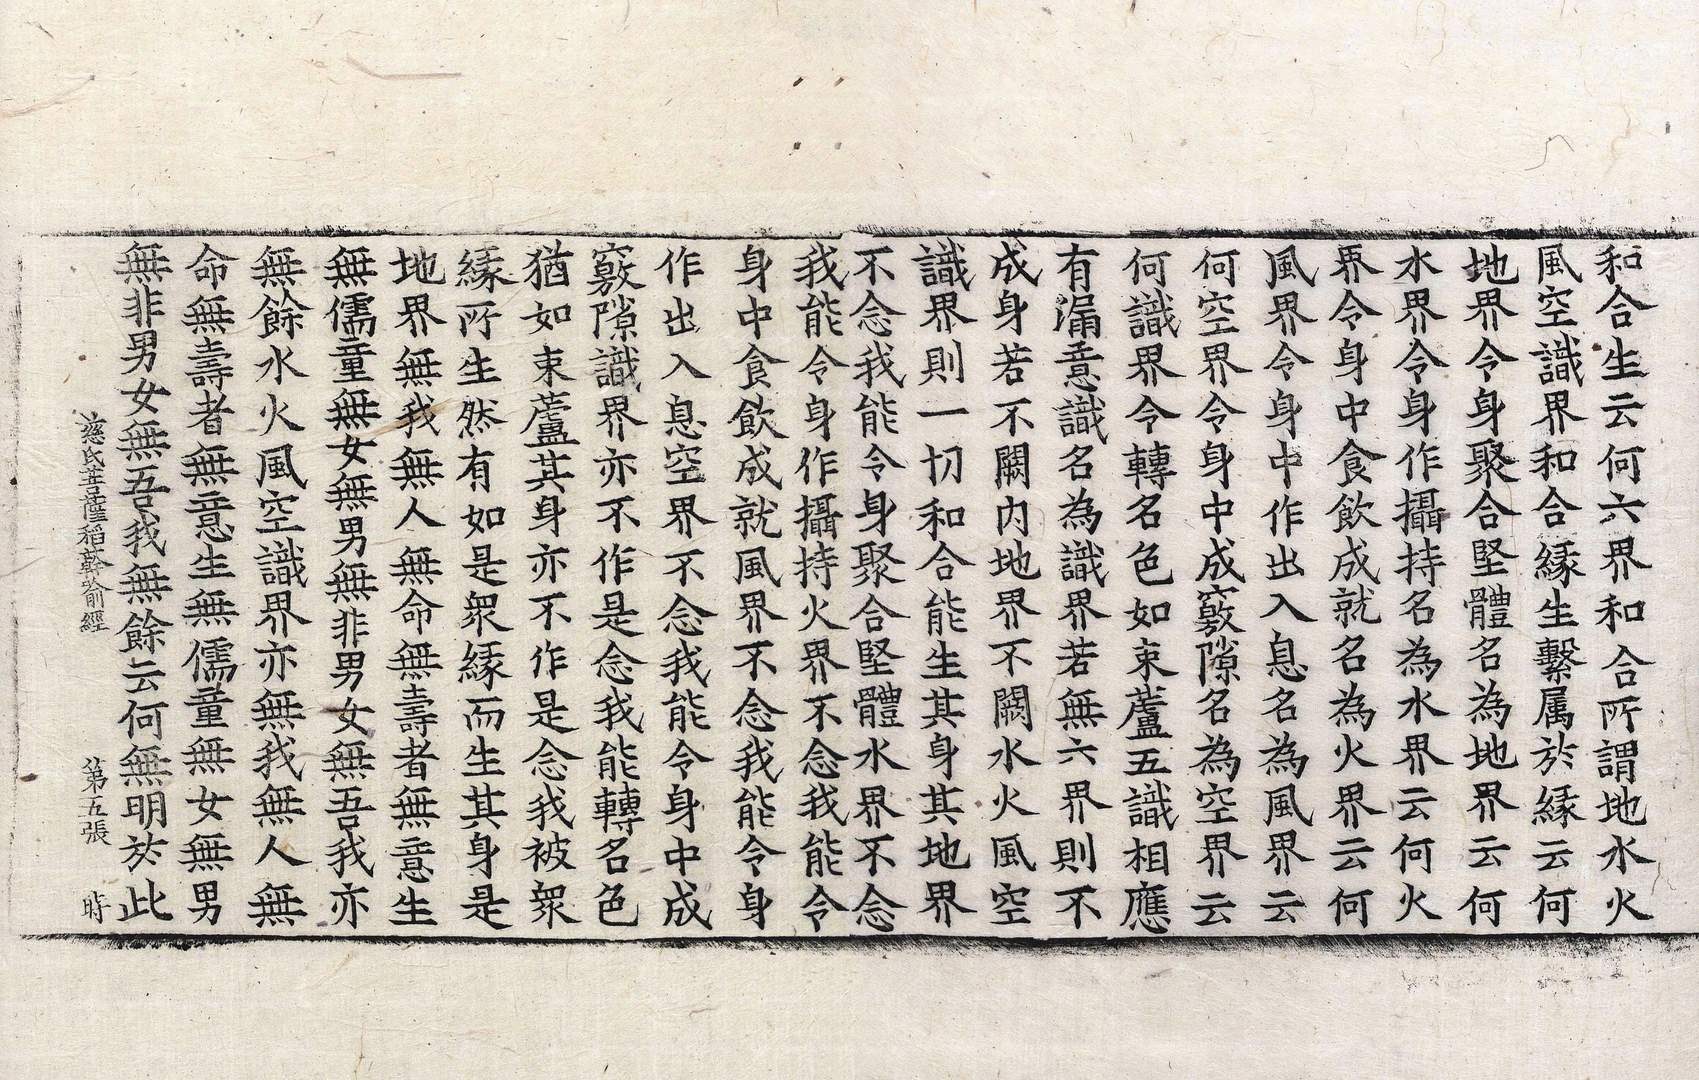 和合生云何六界和合所謂地水火
風空識界和合緣生繫属於緣云何
地界令身聚合堅體名為地界云何
水界令身作攝持名為水界云何火
界令身中食飲成就名為火界云何
風界令身中作出入息名為風界云
何空界令身中成竅隙名為空界云
何識界令轉名色如束蘆五識相應
有漏意識名為識界若無六界則不
成身若不闕內地界不闕水火風空
識界則一切和合能生其身其地界
不念我能令身聚合堅體水界不念
我能令身作攝持火界不念我能令
身中食飲成就風界不念我能令身
作出入息空界不念我能令身中成
竅隙識界亦不作是念我能轉名色
猶如束蘆其身亦不作是念我被眾
緣所生然有如是眾緣而生其身是
地界無我無人無命無壽者無意生
無儒童無女無男無非男女無吾我亦
無餘水火風空識界亦無我無人無
命無壽者無意生無儒童無女無男
無非男女無吾我無餘云何無明於此
慈氏菩薩稻𦼮喻經 第五張 時